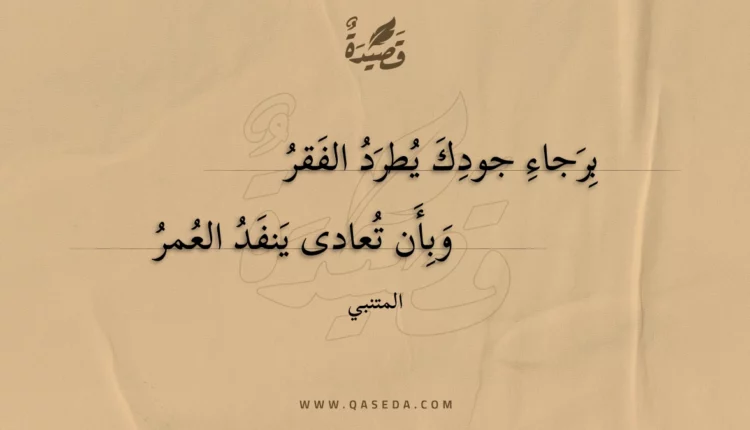 قَصِيْدَةٌ
بِرَجاءِ جودِكَ يُطرَدُ الفَقرُ
وَبِأَن تُعادى يَنفَدُ العُمرُ
المتنبي
WWW.QASEDA.COM